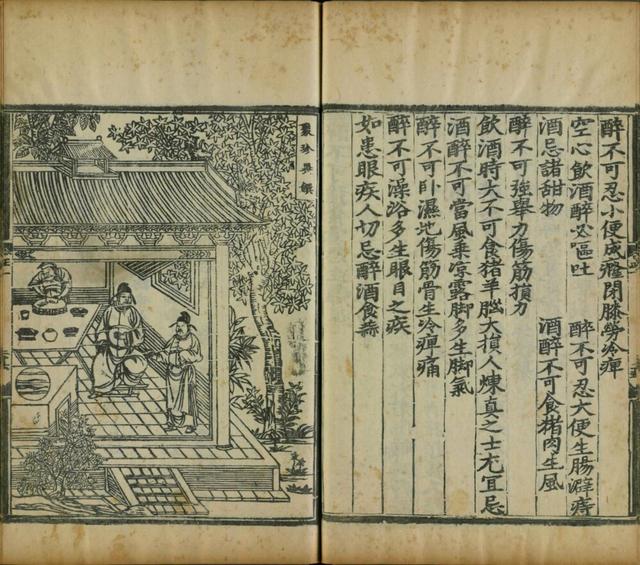 醉不可忍小便成癃閉膝勞冷痺
空心飲酒醉必嘔吐　醉不可忍大便生腸澼痔
酒忌諸甜物　酒醉不可食猪肉生風
醉不可強舉力傷筋損力
飲酒時大不可食猪羊腦大損人煉真之士尤宜忌
酒醉不可當風乘凉露脚多生脚氣
醉不可卧濕地傷筋骨生冷痺痛
醉不可澡浴多生眼目之疾
如患眼疾人切忌醉酒食蒜
聚珍異饌